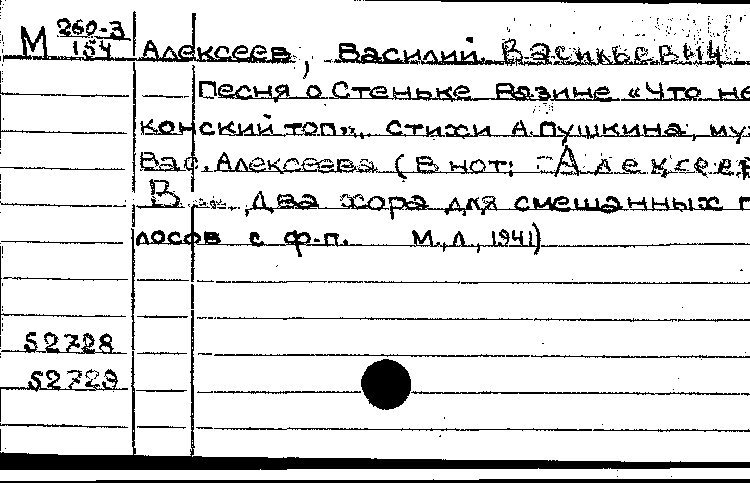 М 260-3
154 Алексеев, Василий Васильевич
Песня о Стеньке Разине «Что не
конский топ», стихи А.Пушкина, муз
Вас.Алексеева (В нот: Алексеев
В два хора для смешанных г
лосов с ф-п. М.,Л.,1941)
52728
52729